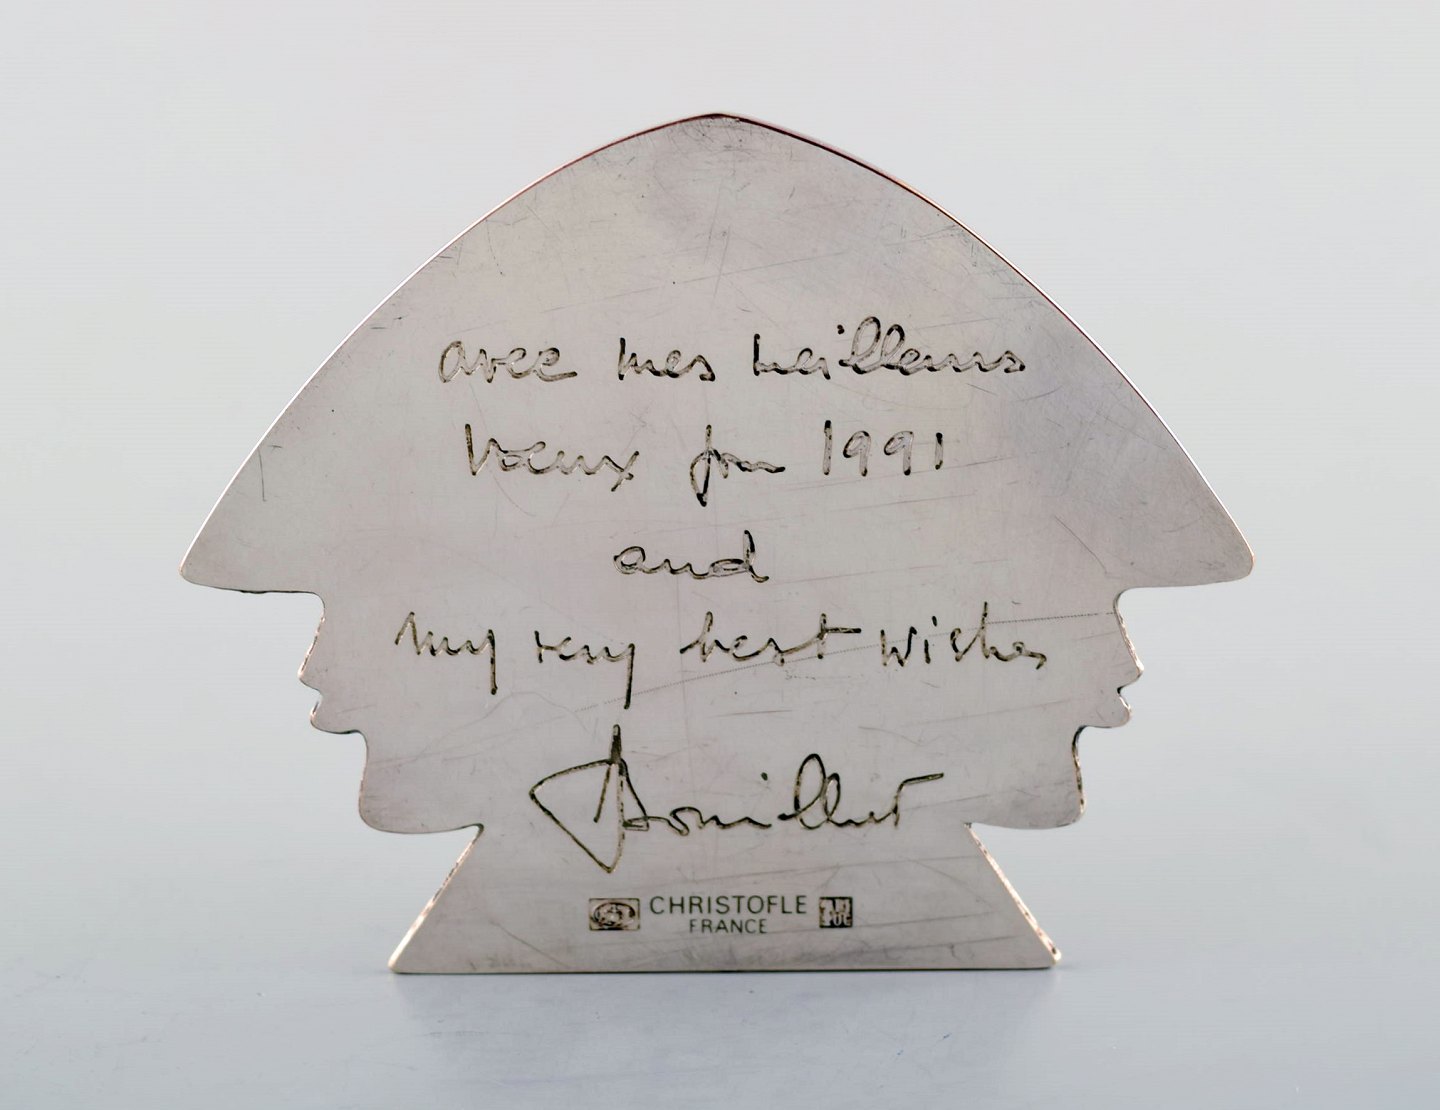 avec mes meilleurs
vœux pour 1991
and
my very best wishes
CHRISTOFLE
FRANCE